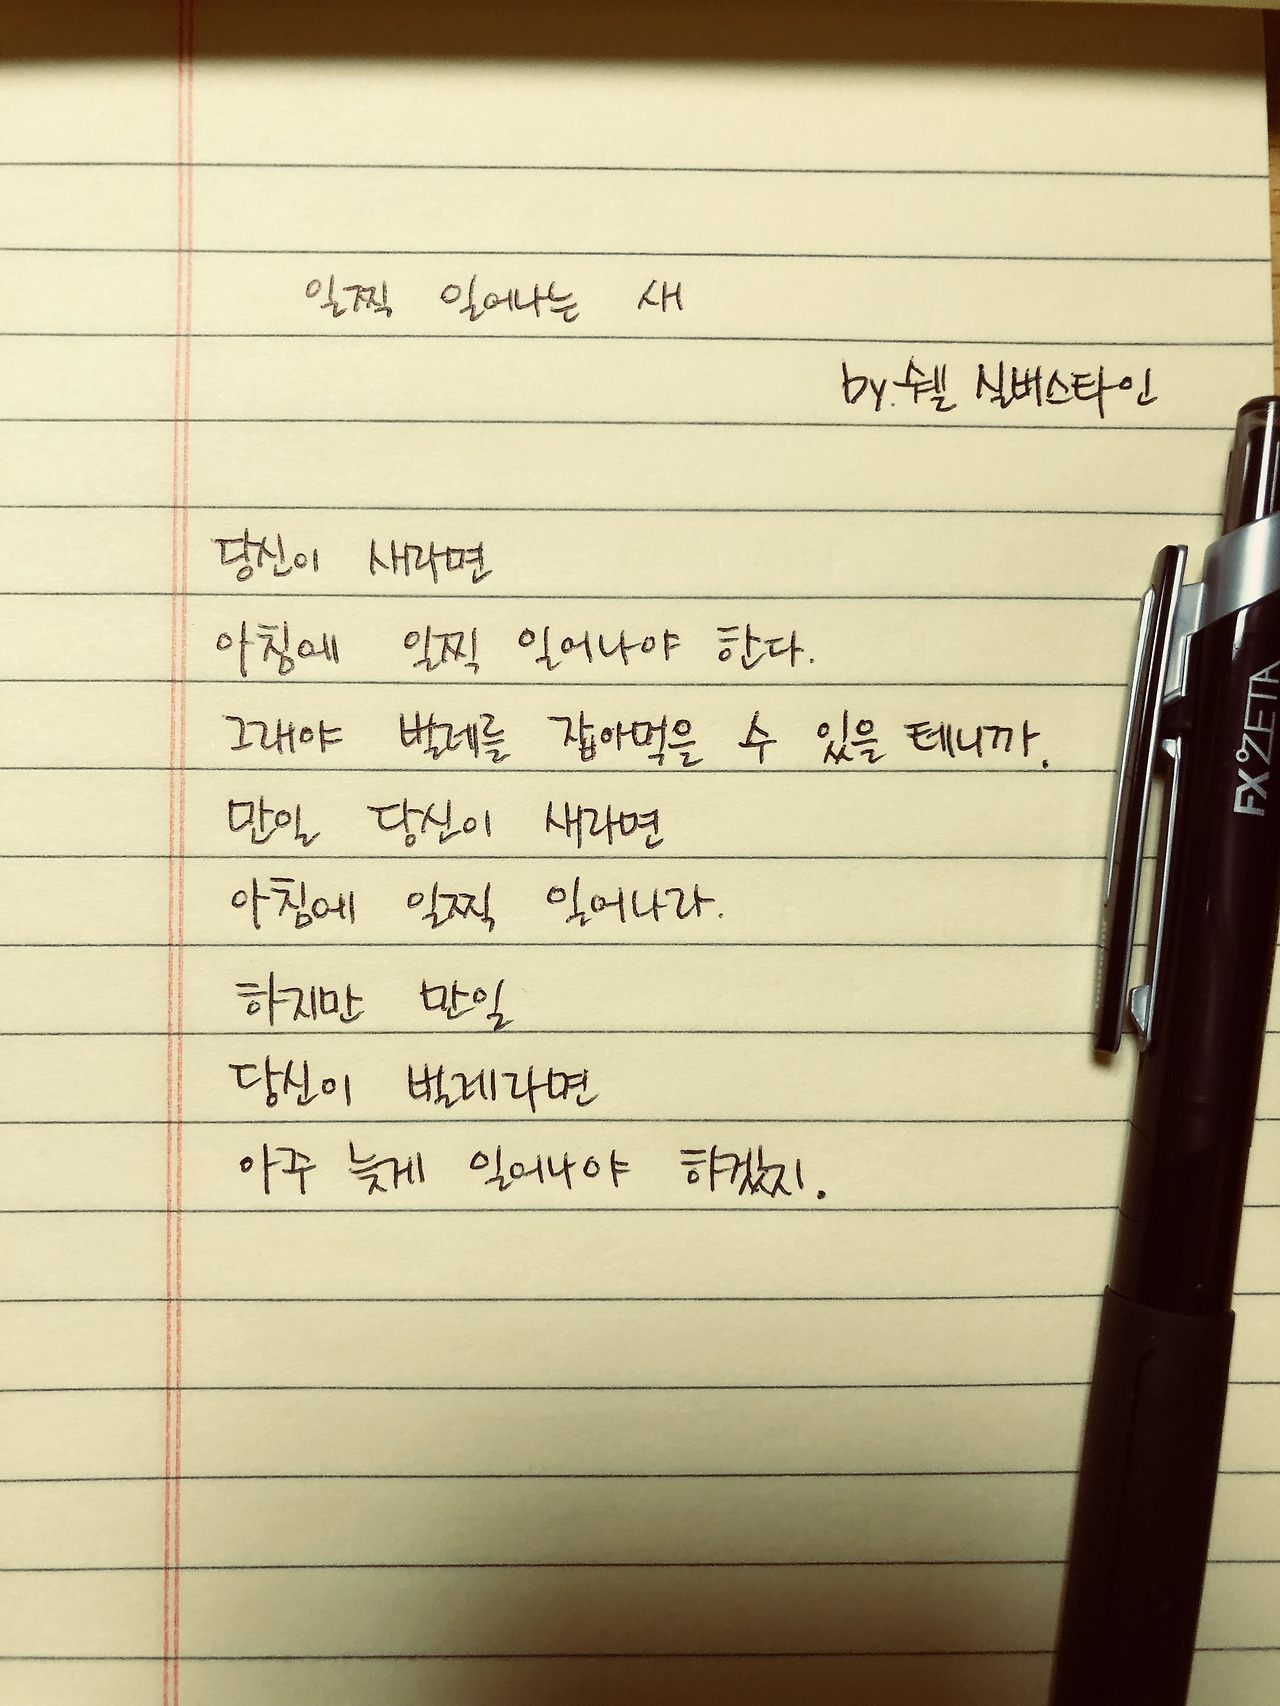 일찍 일어나는 새
by. 쉘 실버스타인
당신이 새라면
아침에 일찍 일어나야 한다.
그래야 벌레를 잡아먹을 수 있을 테니까.
만일 당신이 새라면
아침에 일찍 일어나라.
하지만 만일
당신이 벌레라면
아주 늦게 일어나야 하겠지.
FX ZETA